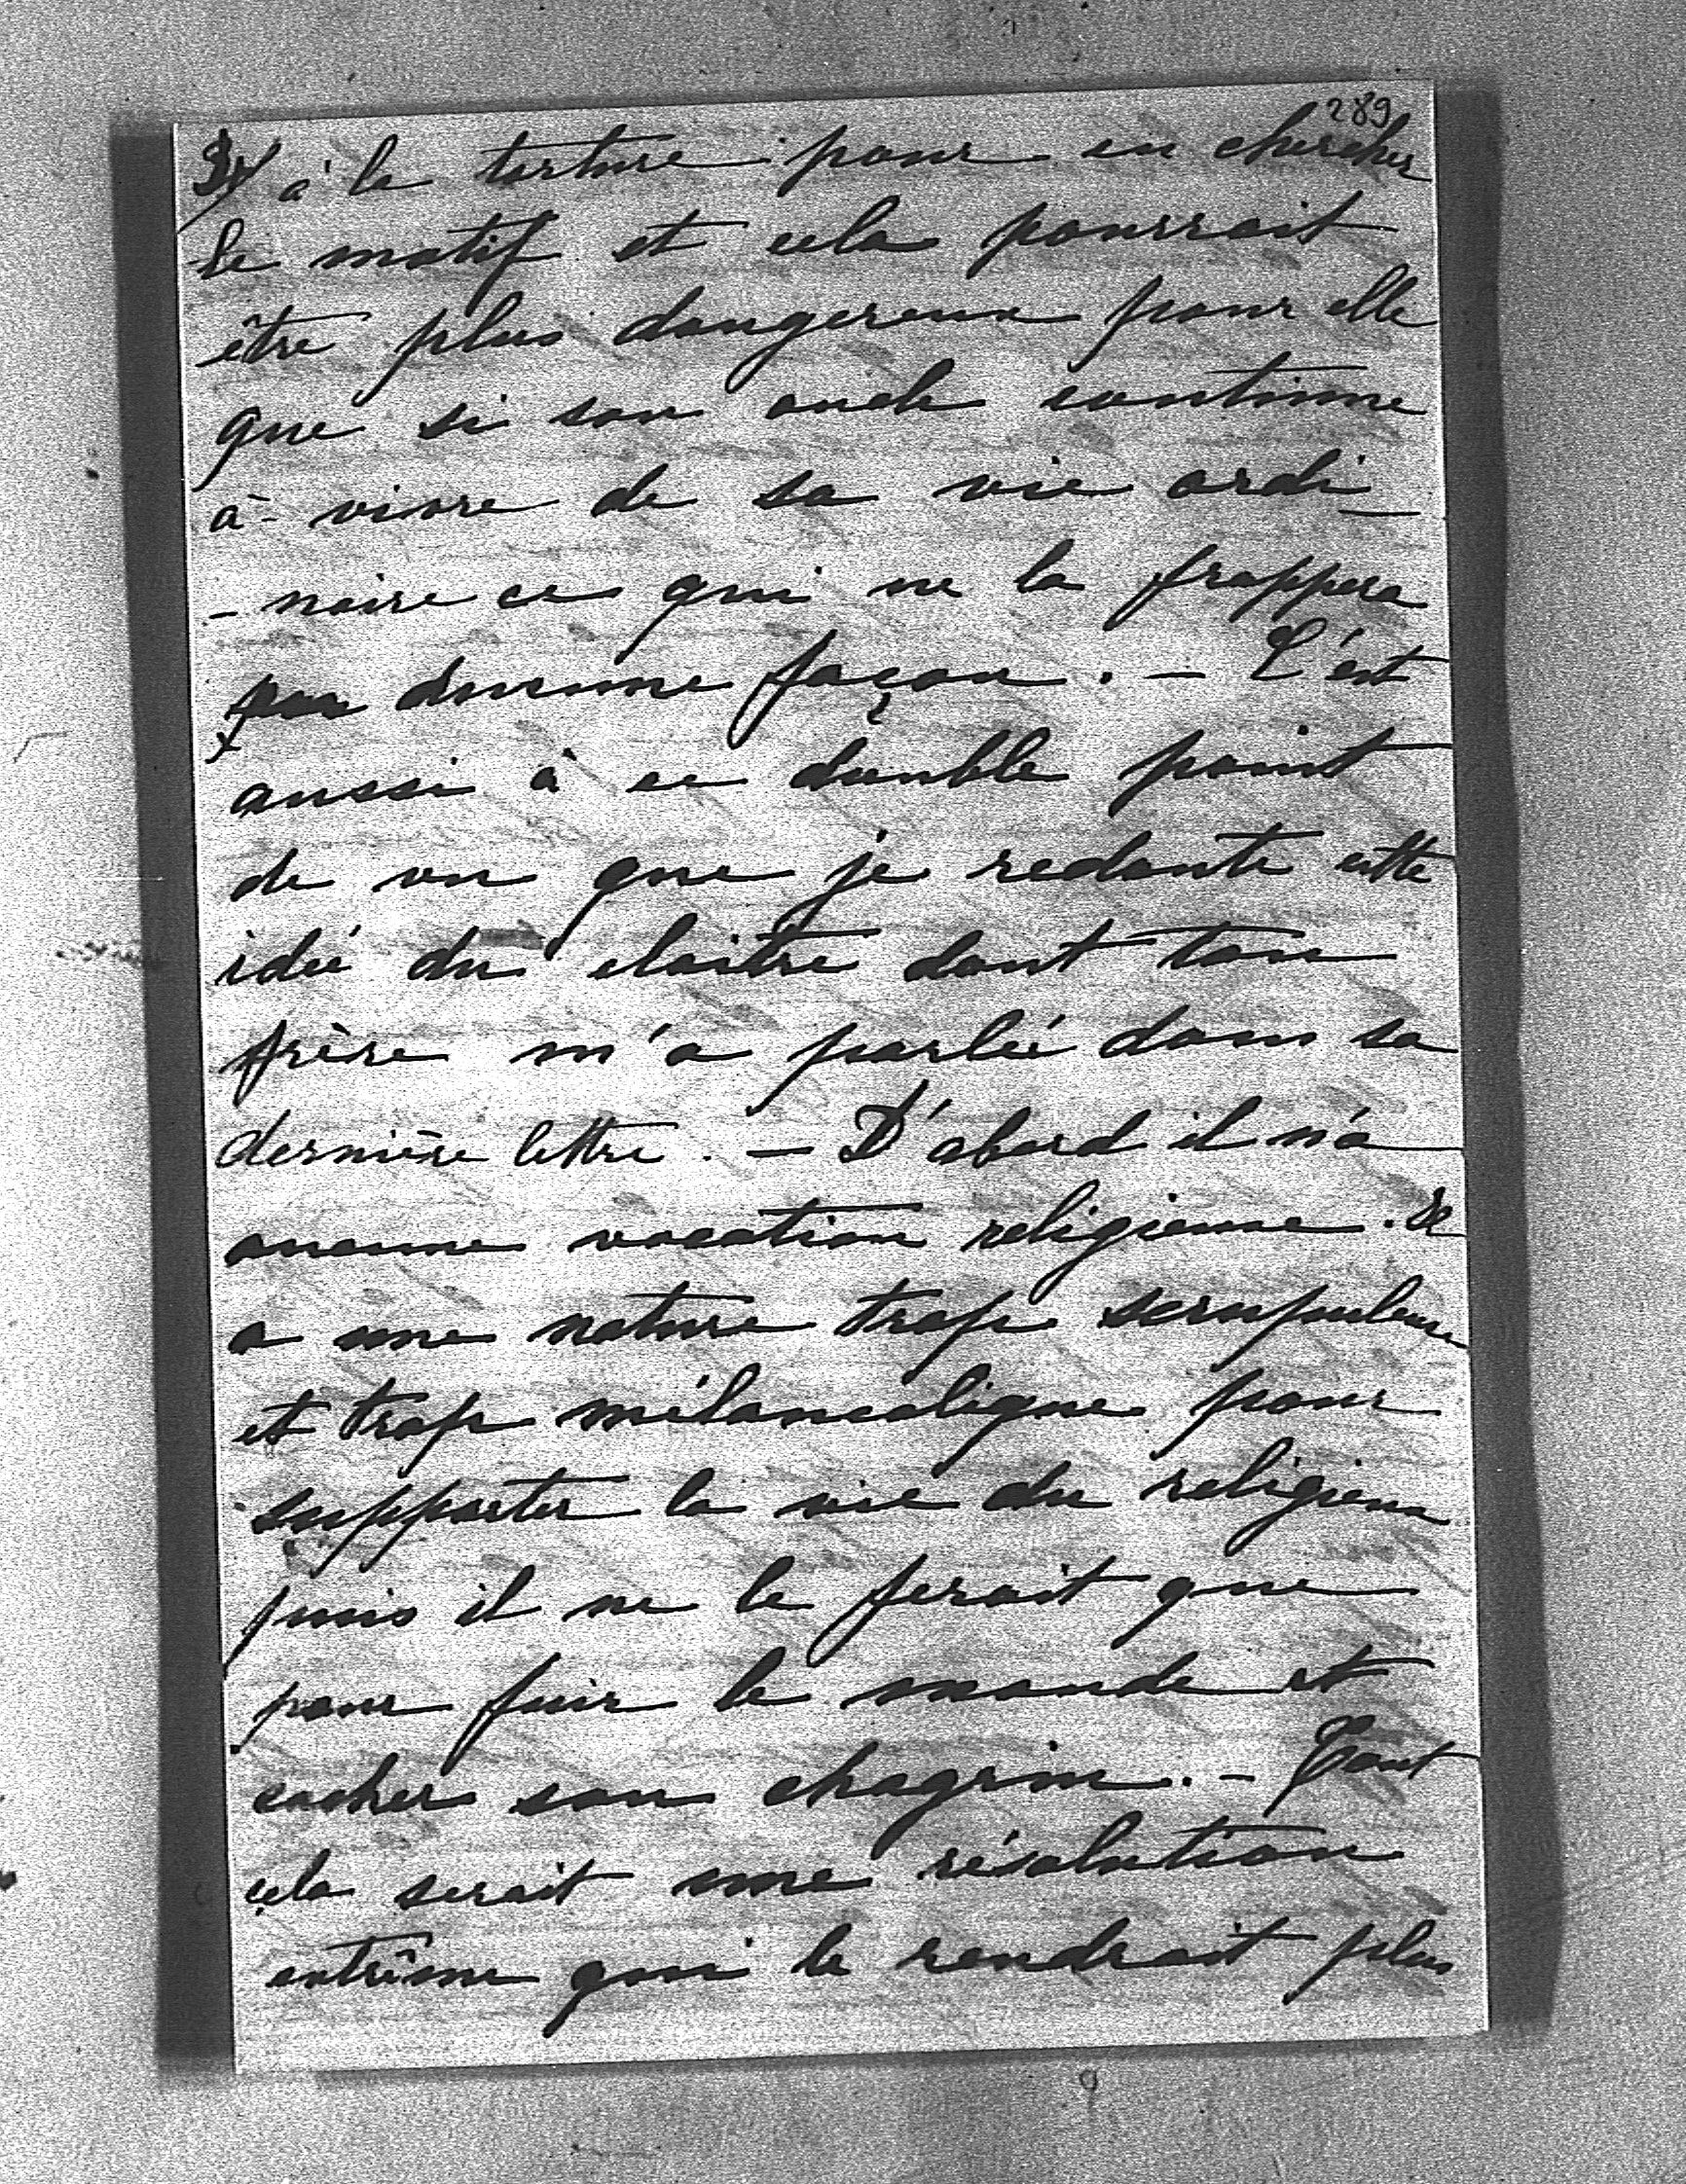 289
3/ à la torture pour en chercher
le motif et cela pourrait
être plus dangereux pour elle
que si son oncle continue
à vivre de sa vie ordi
- naire ce qui ne la frappera
d'aucune façon. - C'est
aussi à ce double point
de vu que je redoute cette
idée du cloître dont ton
frère m'a parlée dans sa
dernière lettre. - D'abord il n'a
aucune vocation religieuse. Il
a une nature trop scrupuleuse
et trop mélancolique pour
supporter la vie du religieux
puis il ne le ferait que
pour fuir le monde et
cacher son chagrin. - Tout
cela serait une résolution
extrême qui le rendrait plus